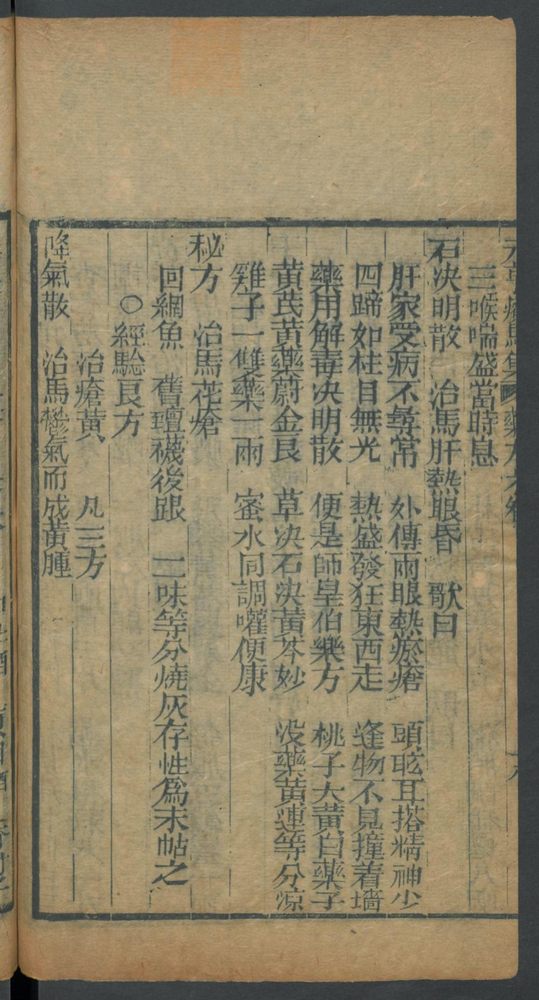 三喉喘盛當時息
石决明散　治馬肝熱眼昏　歌曰
肝家受病不尋常　外傳兩眼熱瘀瘡　頭眩耳搭精神少
四蹄如柱目無光　熱盛發狂東西走　逢物不見撞着墻
藥用解毒决明散　便是師皇伯樂方　桃子大黄白藥子
黄芪黄藥蔚金良　草决石决黄芩妙　没藥黄連等分凉
雞子一雙藥二兩　蜜水同調嚾便康
秘方　治馬花瘡
回網魚　舊壇襪後跟　二味等分燒灰存性爲末帖之
○經騐良方
治瘡黄　凡三方
降氣散　治馬鬱氣而成黄腫